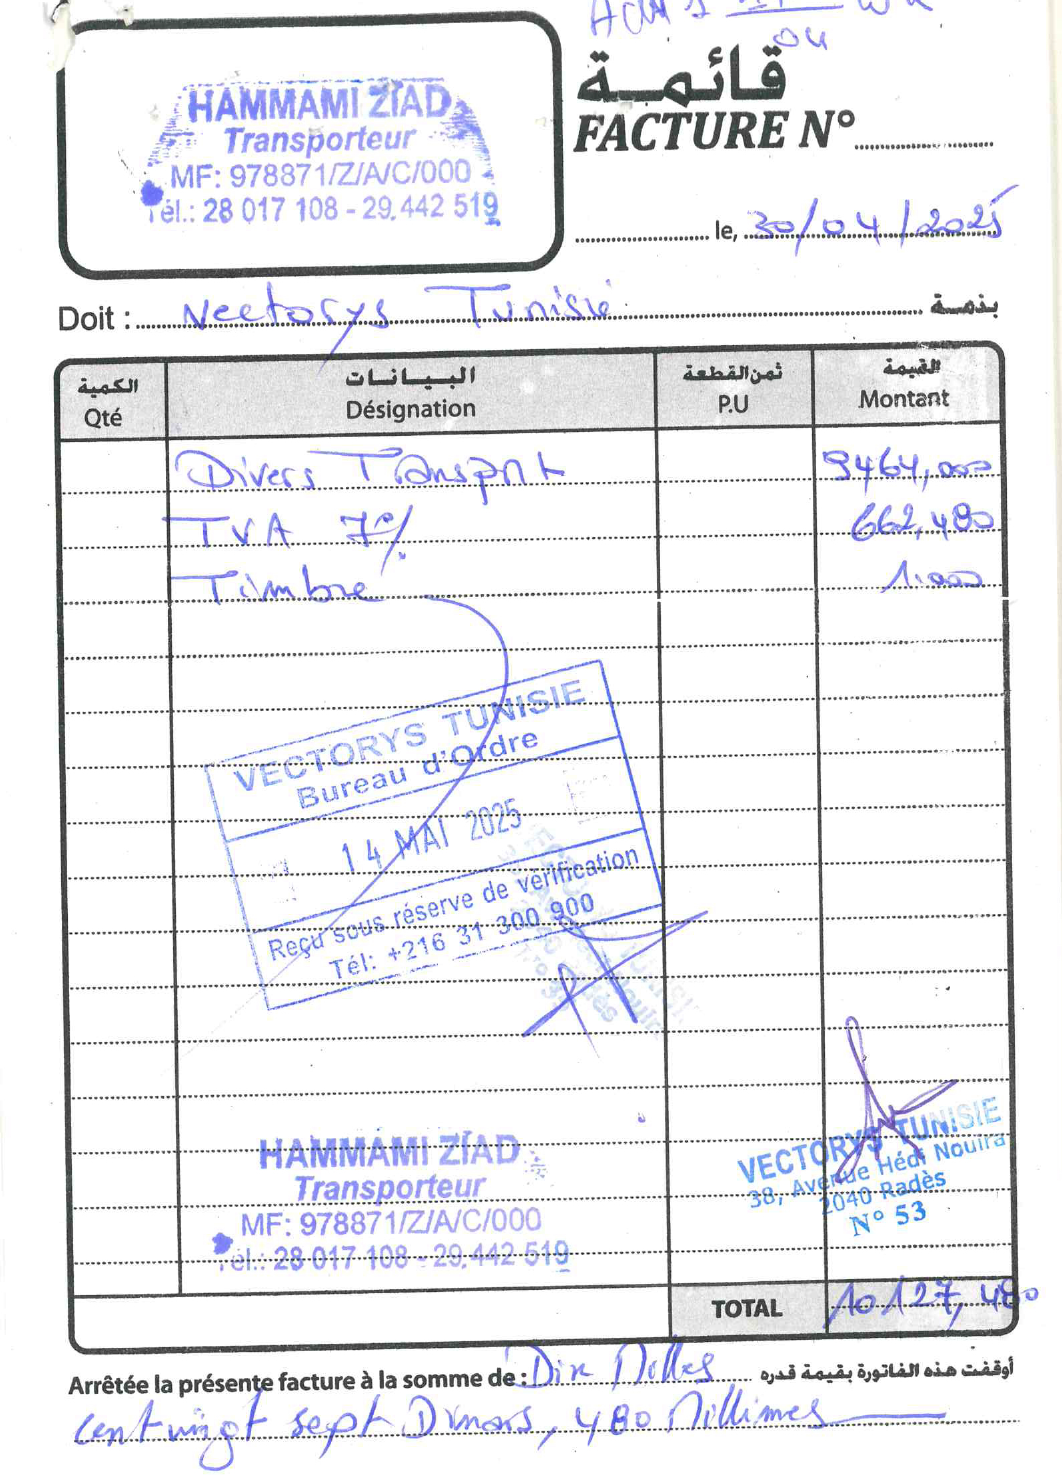 HAMMAMI ZIAD
Transporteur
MF: 978871/Z/A/C/000
Tél.: 28 017 108 - 29.442 519
04
قائمة
FACTURE N°
le, 30/04/2025
Doit : Vectorys Tunisie بذمة
الكمية البيانات ثمن القطعة القيمة
Qté Désignation P.U Montant
Divers Transport 9464,000
TVA 7% 662,480
Timbre 1.000
VECTORYS TUNISIE
Bureau d'Ordre
14 MAI 2025
Reçu sous réserve de vérification
Tél: +216 31 300 900
HAMMAMI ZIAD
Transporteur
MF: 978871/Z/A/C/000
Tél.: 28 017 108 - 29.442 519
VECTORYS TUNISIE
38, Avenue Hédi Nouira
2040 Radès
N° 53
TOTAL 10127,480
Arrêtée la présente facture à la somme de : Dix Milles أوقفت هذه الفاتورة بقيمة قدره
cent vingt sept Dinars, 480 Millimes